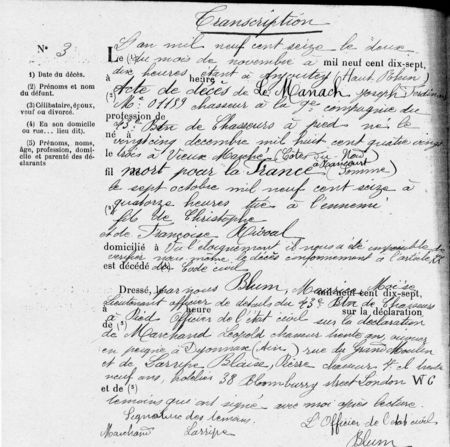 Transcription
N° 3
1) Date du décès.
(2) Prénoms et nom du défunt.
(3) Célibataire, époux, veuf ou divorcé.
(4) En son domicile ou rue... lieu dit).
(5) Prénoms, noms, âge, profession, domicile et parenté des déclarants
L'an mil neuf cent seize le deux
Le (1) du mois de novembre à mil neuf cent dix-sept,
dix heures étant à (Haut Rhin)
à heure
Acte de décès de Le Manach Joseph
M° 01159 chasseur à la 9e compagnie du
profession de
43e Btn de Chasseurs à pied né le
né à
vingt cinq décembre mil huit cent quatre vingt
trois à Vieux Marché (Côtes du Nord)
à Rancourt
fil mort pour la France (Somme)
le sept octobre mil neuf cent seize à
quatorze heures tué à l'ennemi
fils de Christophe
et de Françoise
domicilié à Vu l'éloignement il nous a été impossible de
vérifier nous même le décès conformément à l'article
est décédé Code civil
Dressé, par nous Blum, Maurice Moïse mil neuf cent dix-sept,
Lieutenant officier de détails du 43e Btn de Chasseurs
à heure sur la déclaration
à Pied Officier de l'état civil sur la déclaration
de (5)
de Marchand Léopold chasseur trente ans,
en peigne, à Oyonnax (Ain) rue du Grand Moulin
et de Larripe Blaise, Pierre chasseur trente
neuf ans, hôtelier 38 Bloomburry street London W C
et de (5)
témoins qui ont signé avec moi après lecture.
Signature des témoins L'Officier de l'état civil
Marchand Larripe Blum